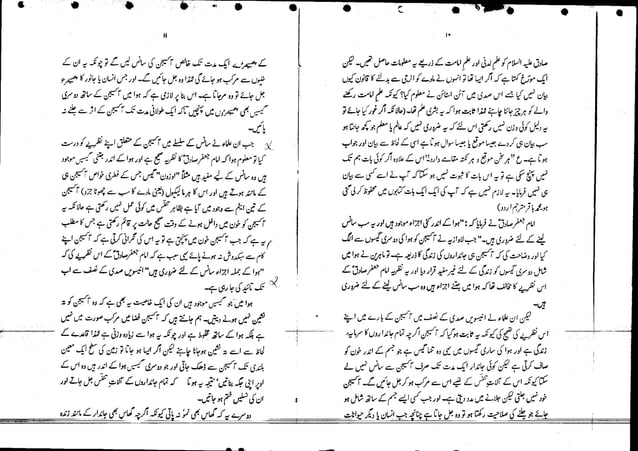 ۱۰
صادق علیہ السلام کو علم لدنی اور علم امامت کے ذریعے یہ معلومات حاصل تھیں۔ لیکن
ایک مورخ کہتا ہے کہ اگر ایسا تھا تو انہوں نے مادے کو انرجی سے بدلنے کا قانون کیوں
بیان نہیں کیا جسے اس صدی میں آئن اسٹائن نے معلوم کیا؟ کیونکہ علم امامت رکھنے
والے کو ہر چیز جاننا چاہئے لہذا ثابت ہوا کہ یہ بشری علم تھا۔ (حالانکہ اگر غور کیا جائے تو
یہ دلیل کوئی وزن نہیں رکھتی اس لئے کہ یہ ضروری نہیں کہ عالم یا معلم جو کچھ جانتا ہو
سب بیان ہی کردے جیسا موقع یا جیسا سوال ہوتا ہے اسی کے لحاظ سے بیان اور جواب
ہوتا ہے۔ ع "ہر سخن موقع و ہر نکتہ مقامے دارد" اس کے علاوہ اگر کوئی بات ہم تک
نہیں پہنچ سکی ہے تو یہ اس بات کا ثبوت نہیں ہو سکتا کہ آپ نے اسے کسی سے بیان
ہی نہیں فرمایا۔ یہ لازم نہیں ہے کہ آپ کی ایک ایک بات کتابوں میں محفوظ کرلی گئی
ہو۔ محمد باقر مترجم اردو)
امام جعفر صادقؑ نے فرمایا کہ: "ہوا کے اندر کئی اجزاء موجود ہیں اور یہ سب سانس
لینے کے لئے ضروری ہیں۔" جب لاوازیہ نے آکسیجن کو ہوا کی دوسری گیسوں سے الگ
کیا اور وضاحت کی کہ آکسیجن ہی جانداروں کی زندگی کا ذریعہ ہے۔ تو ماہرین نے ہوا میں
شامل دوسری گیسوں کو زندگی کے لئے غیر مفید قرار دیا اور یہ نظریہ امام جعفر صادقؑ کے
اس نظریے کا مخالف تھا کہ ہوا میں جتنے اجزاء ہیں وہ سب سانس لینے کے لئے ضروری
ہیں۔
لیکن ان علماء نے انیسویں صدی کے نصف میں آکسیجن کے بارے میں اپنے
اس نظریئے کی تصحیح کی کیونکہ یہ ثابت ہو گیا کہ آکسیجن اگرچہ تمام جانداروں کا سرمایہ
زندگی ہے اور ہوا کی ساری گیسوں میں یہی وہ تنہا گیس ہے جو جسم کے اندر خون کو
صاف کرتی ہے لیکن کوئی جاندار ایک مدت تک صرف آکسیجن سے سانس نہیں لے
سکتا کیونکہ اس کے آلات تنفس کے خلیے اس سے مرکب ہو کر جل جائیں گے۔ آکسیجن
خود نہیں جلتی لیکن جلانے میں مدد دیتی ہے۔ اور جب کسی ایسے جسم کے ساتھ شامل ہو
جائے جو جلنے کی صلاحیت رکھتا ہو تو وہ جل جاتا ہے چنانچہ جب انسان یا دیگر حیوانات
۱۱
کے پھیپھڑے ایک مدت تک خالص آکسیجن کی سانس لیں گے تو چونکہ یہ ان کے
خلیوں سے مرکب ہو جائے گی لہذا وہ جل جائیں گے۔ اور جس انسان یا جانور کا پھیپھڑہ
جل جائے تو وہ مرجاتا ہے۔ اس بنا پر لازمی ہے کہ ہوا میں آکسیجن کے ساتھ دوسری
گیسیں بھی پھیپھڑوں میں پہنچیں تاکہ ایک طولانی مدت تک آکسیجن کے اثر سے جلنے نہ
پائیں۔
جب ان علماء نے سانس کے سلسلے میں آکسیجن کے متعلق اپنے نظریے کو درست
کیا تو معلوم ہوا کہ امام جعفر صادقؑ کا نظریہ صحیح ہے اور ہوا کے اندر جتنی گیسیں موجود
ہیں وہ سانس کے لئے مفید ہیں مثلاً "اوزون" گیس جس کے فطری خواص آکسیجن ہی
کے مانند ہوتے ہیں اور اس کا ہر مالیکیول (یعنی مادے کا سب سے چھوٹا جزء) آکسیجن
کے تین ایٹم سے وجود میں آیا ہے بظاہر تنفس میں کوئی عمل نہیں رکھتی ہے حالانکہ یہ
آکسیجن کو خون میں داخل ہونے کے وقت صحیح حالت پر قائم رکھتی ہے جس کا مطلب
یہ ہے کہ جب آکسیجن خون میں پہنچتی ہے تو یہ اس کی نگرانی کرتی ہے کہ آکسیجن اپنے
کام سے سبکدوش نہ ہونے پائے یہی سبب ہے کہ امام جعفر صادقؑ کے اس نظریے کی کہ
"ہوا کے جملہ اجزاء سانس کے لئے ضروری ہیں" انیسویں صدی کے نصف سے اب
تک تائید کی جارہی ہے۔
ہوا میں جو گیسیں موجود ہیں ان کی ایک خاصیت یہ بھی ہے کہ وہ آکسیجن کو تہ
نشین نہیں ہونے دیتیں۔ ہم جانتے ہیں کہ آکسیجن فضا میں مرکب صورت میں نہیں
ہے بلکہ ہوا کے ساتھ مخلوط ہے اور چونکہ یہ ہوا سے زیادہ وزنی ہے لہذا قاعدے کے
لحاظ سے اسے تہ نشین ہو جانا چاہئے لیکن اگر ایسا ہو جاتا تو زمین کی سطح ایک معین
بلندی تک آکسیجن سے ڈھک جاتی اور جو دوسری گیسیں ہوا کے اندر ہیں وہ اس کے
اوپر اپنی جگہ بناتیں "نتیجہ یہ ہوتا کہ تمام جانداروں کے آلات تنفس جل جاتے اور
ان کی نسلیں ختم ہو جاتیں۔
دوسرے یہ کہ گھاس بھی نمو نہ پاتی کیونکہ اگرچہ گھاس بھی جاندار کے مانند زندہ